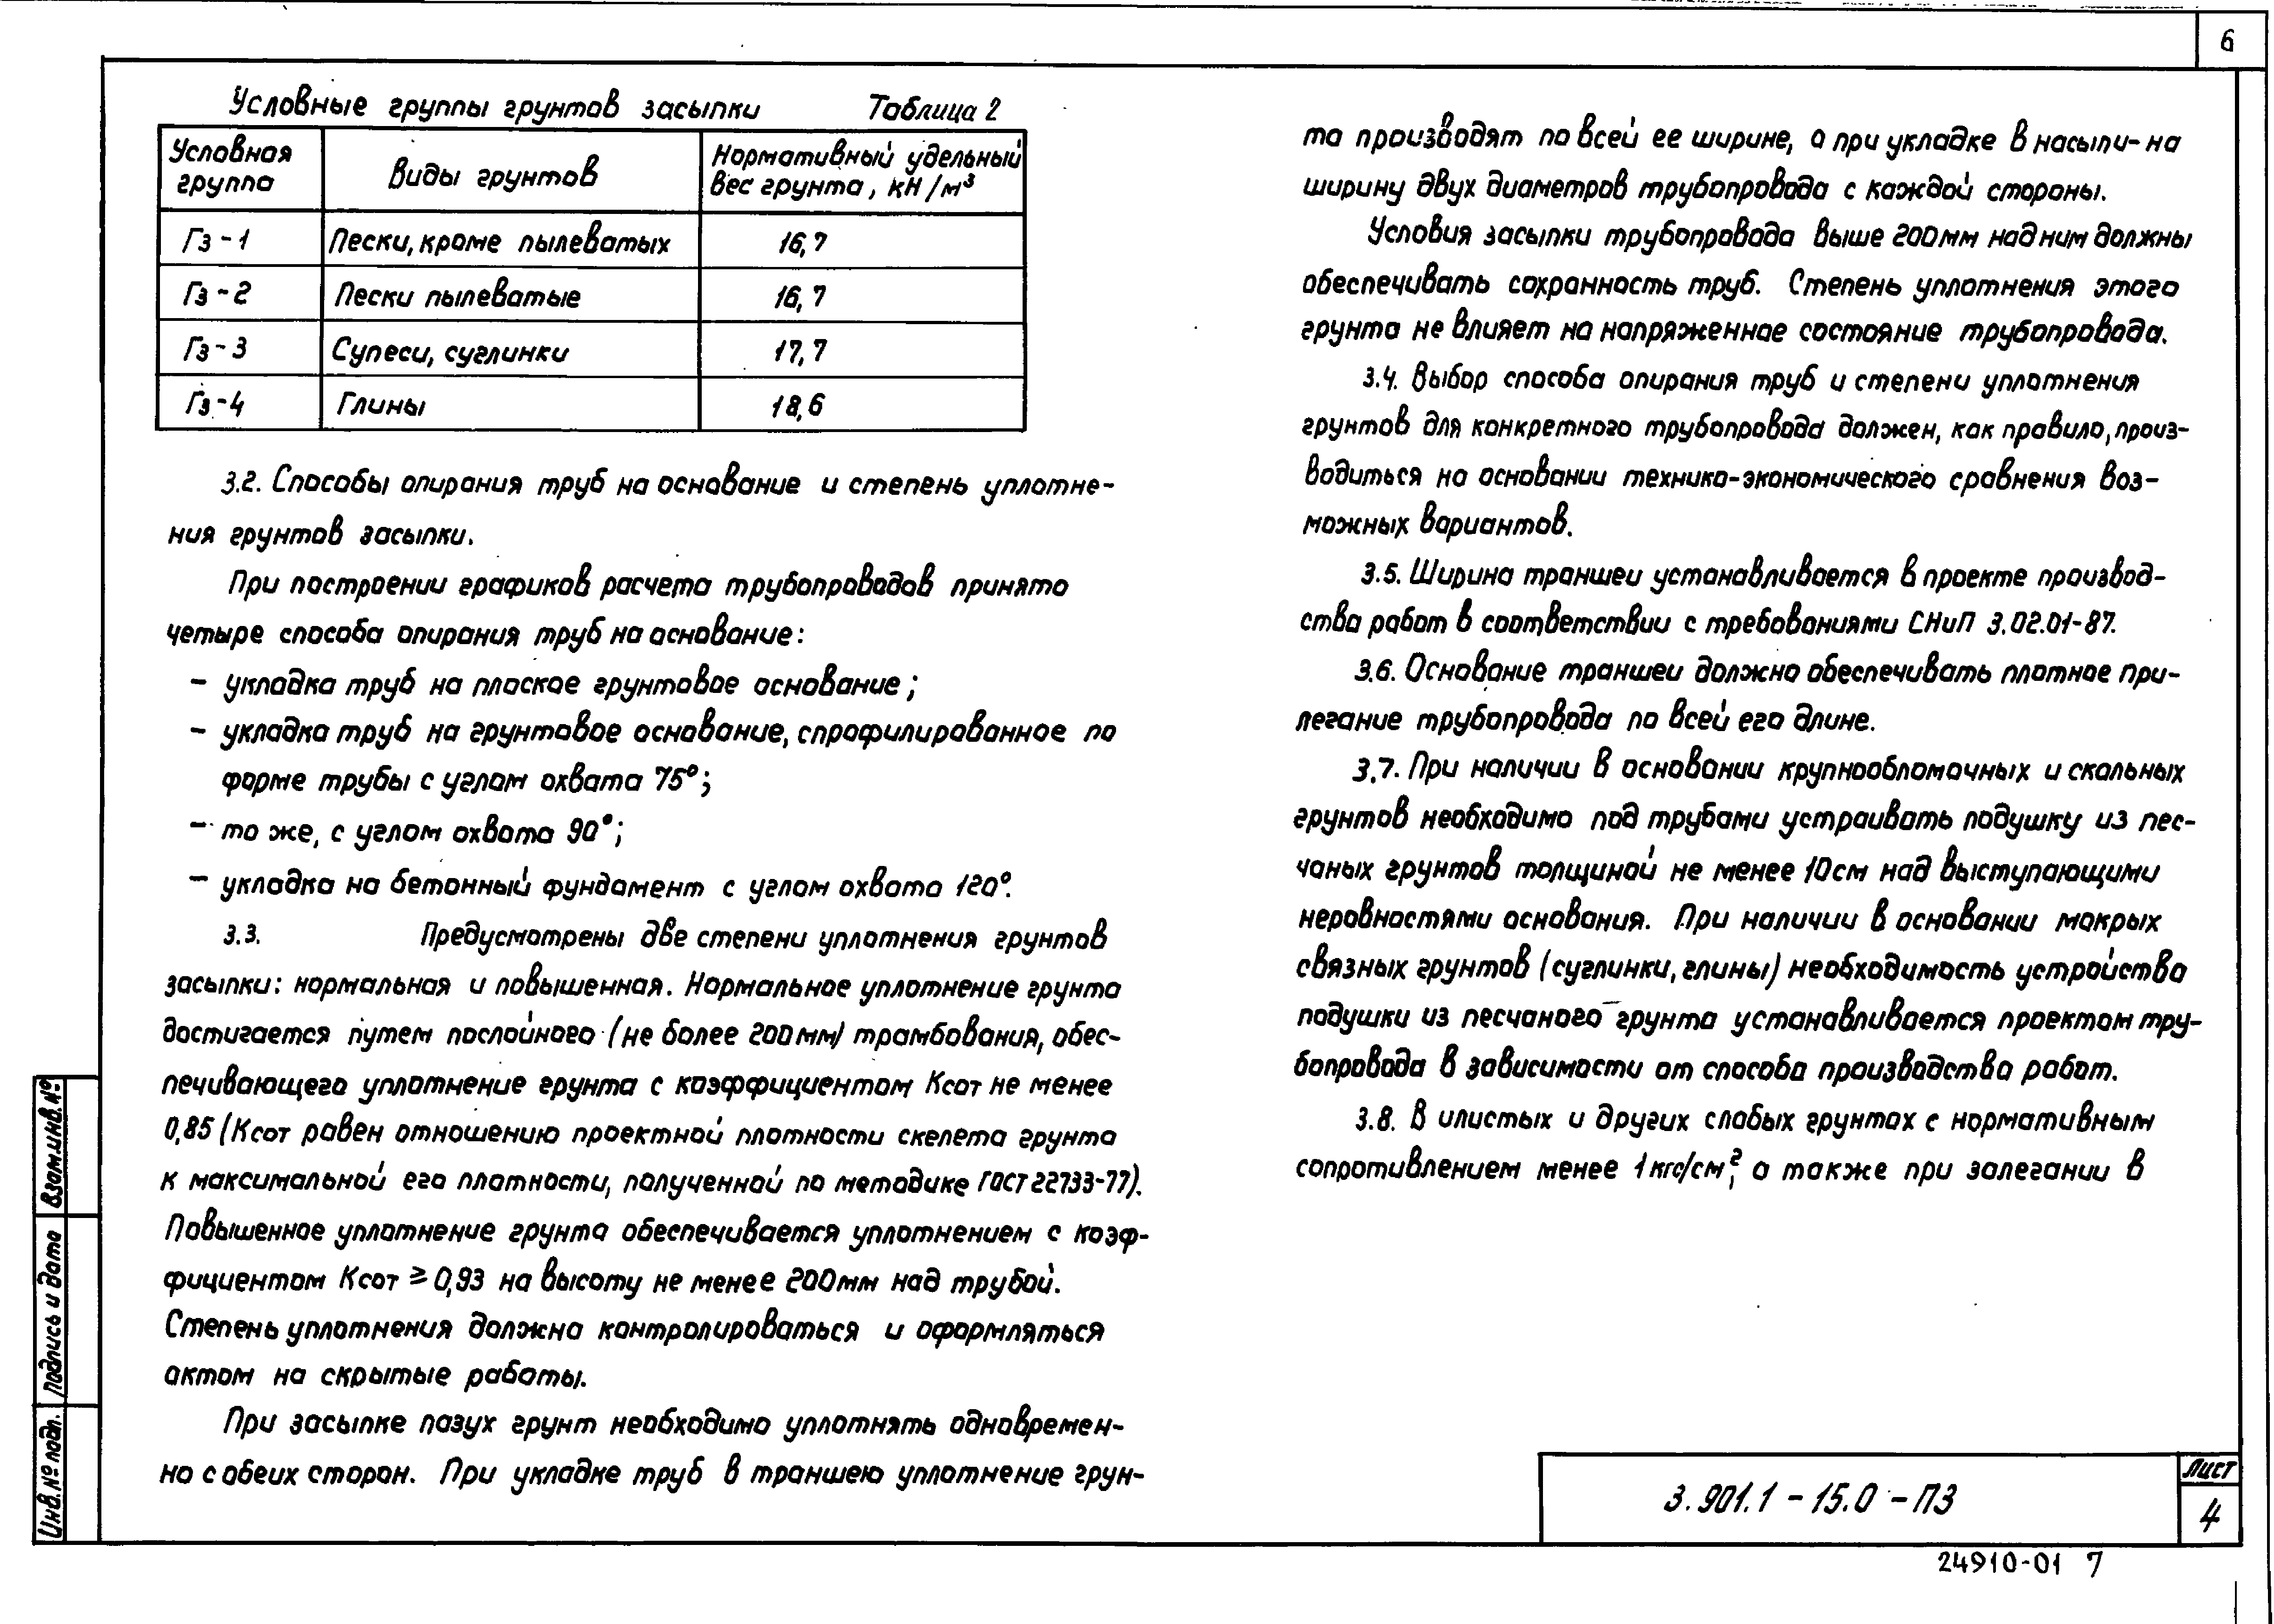 6
Условные группы грунтов засыпки Таблица 2
Условная группа Виды грунтов Нормативный удельный вес грунта, кН/м³
Гз-1 Пески, кроме пылеватых 16,7
Гз-2 Пески пылеватые 16,7
Гз-3 Супеси, суглинки 17,7
Гз-4 Глины 18,6
3.2. Способы опирания труб на основание и степень уплотне-
ния грунтов засыпки.
При построении графиков расчета трубопроводов принято
четыре способа опирания труб на основание:
– укладка труб на плоское грунтовое основание;
– укладка труб на грунтовое основание, спрофилированное по
форме трубы с углом охвата 75°;
– то же, с углом охвата 90°;
– укладка на бетонный фундамент с углом охвата 120°.
3.3. Предусмотрены две степени уплотнения грунтов
засыпки: нормальная и повышенная. Нормальное уплотнение грунта
достигается путем послойного (не более 200мм) трамбования, обес-
печивающего уплотнение грунта с коэффициентом Ксот не менее
0,85 (Ксот равен отношению проектной плотности скелета грунта
к максимальной его плотности, полученной по методике ГОСТ 22733-77).
Повышенное уплотнение грунта обеспечивается уплотнением с коэф-
фициентом Ксот ≥ 0,93 на высоту не менее 200мм над трубой.
Степень уплотнения должна контролироваться и оформляться
актом на скрытые работы.
При засыпке пазух грунт необходимо уплотнять одновремен-
но с обеих сторон. При укладке труб в траншею уплотнение грун-
та производят по всей ее ширине, а при укладке в насыпи-на
ширину двух диаметров трубопровода с каждой стороны.
Условия засыпки трубопровода выше 200мм над ним должны
обеспечивать сохранность труб. Степень уплотнения этого
грунта не влияет на напряженное состояние трубопровода.
3.4. Выбор способа опирания труб и степени уплотнения
грунтов для конкретного трубопровода должен, как правило, произ-
водиться на основании технико-экономического сравнения воз-
можных вариантов.
3.5. Ширина траншеи устанавливается в проекте производ-
ства работ в соответствии с требованиями СНиП 3.02.01-87.
3.6. Основание траншеи должно обеспечивать плотное при-
легание трубопровода по всей его длине.
3.7. При наличии в основании крупнообломочных и скальных
грунтов необходимо под трубами устраивать подушку из пес-
чаных грунтов толщиной не менее 10см над выступающими
неровностями основания. При наличии в основании мокрых
связных грунтов (суглинки, глины) необходимость устройства
подушки из песчаного грунта устанавливается проектом тру-
бопровода в зависимости от способа производства работ.
3.8. В илистых и других слабых грунтах с нормативным
сопротивлением менее 1кгс/см², а также при залегании в
Взам.инв.№
Подпись и дата
Инв.№ подл.
3.901.1-15.0-ПЗ
Лист
4
24910-01 7